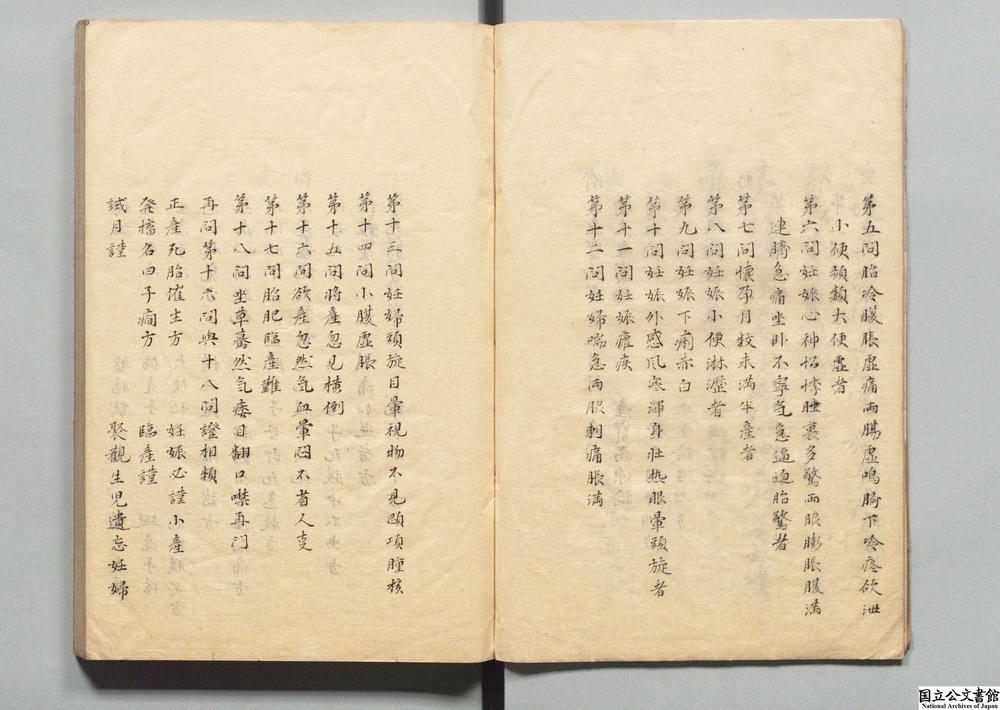 第五問胎冷腹脹虚痛両腸虚鳴臍下冷疼欲泄
小便頻頻大便虚者
第六問妊娠心神忪悸睡裏多驚両脇膨脹腹満
連臍急痛坐卧不寧气急逼迫胎驚者
第七問懷孕月数未満半産者
第八問妊娠小便淋瀝者
第九問妊娠下痢赤白
第十問妊娠外感风寒渾身壮热眼暈頭旋者
第十一問妊娠瘧疾
第十二問妊婦喘急両脇刺痛脹満
第十三問妊婦頭旋目暈視物不見顋項腫核
第十四問小腹虚脹
第十五問将産忽見横倒
第十六問欲産忽然气血暈悶不省人事
第十七問胎肥臨産難
第十八問坐草驀然气痿目翻口噤再問
再問第十六問與十八問證相類
正産死胎催生方 妊娠必謹小産
発搐名曰子癇方 臨産謹
試月謹 聚觀生児遺忘妊婦
国立公文書館
National Archives of Japan